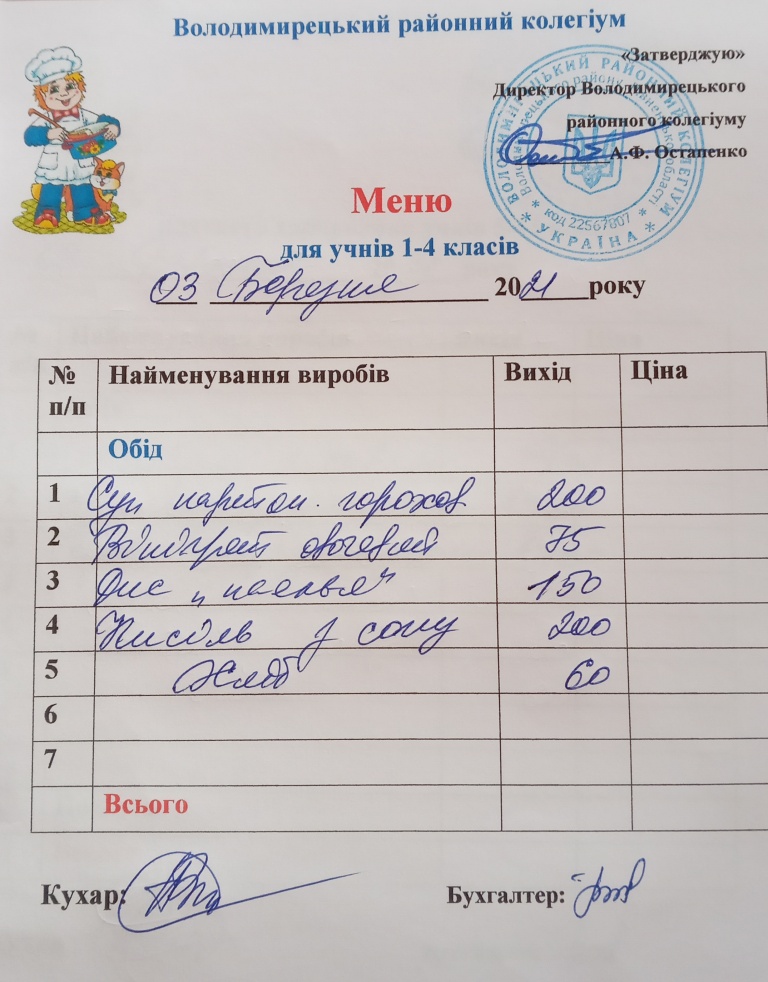 Володимирецький районний колегіум
«Затверджую»
Директор Володимирецького
районного колегіуму
А.Ф. Остапенко
ВОЛОДИМИРЕЦЬКИЙ РАЙОННИЙ КОЛЕГІУМ
код 22567807
* УКРАЇНА *
Меню
для учнів 1-4 класів
03 Березня 2021 року
№ п/п Найменування виробів Вихід Ціна
Обід
1 Суп картоп. горохов 200
2 Вінігрет овочевий 75
3 150
4 Кисіль з соку 200
5 Хліб 60
6
7
Всього
Кухар:
Бухгалтер: